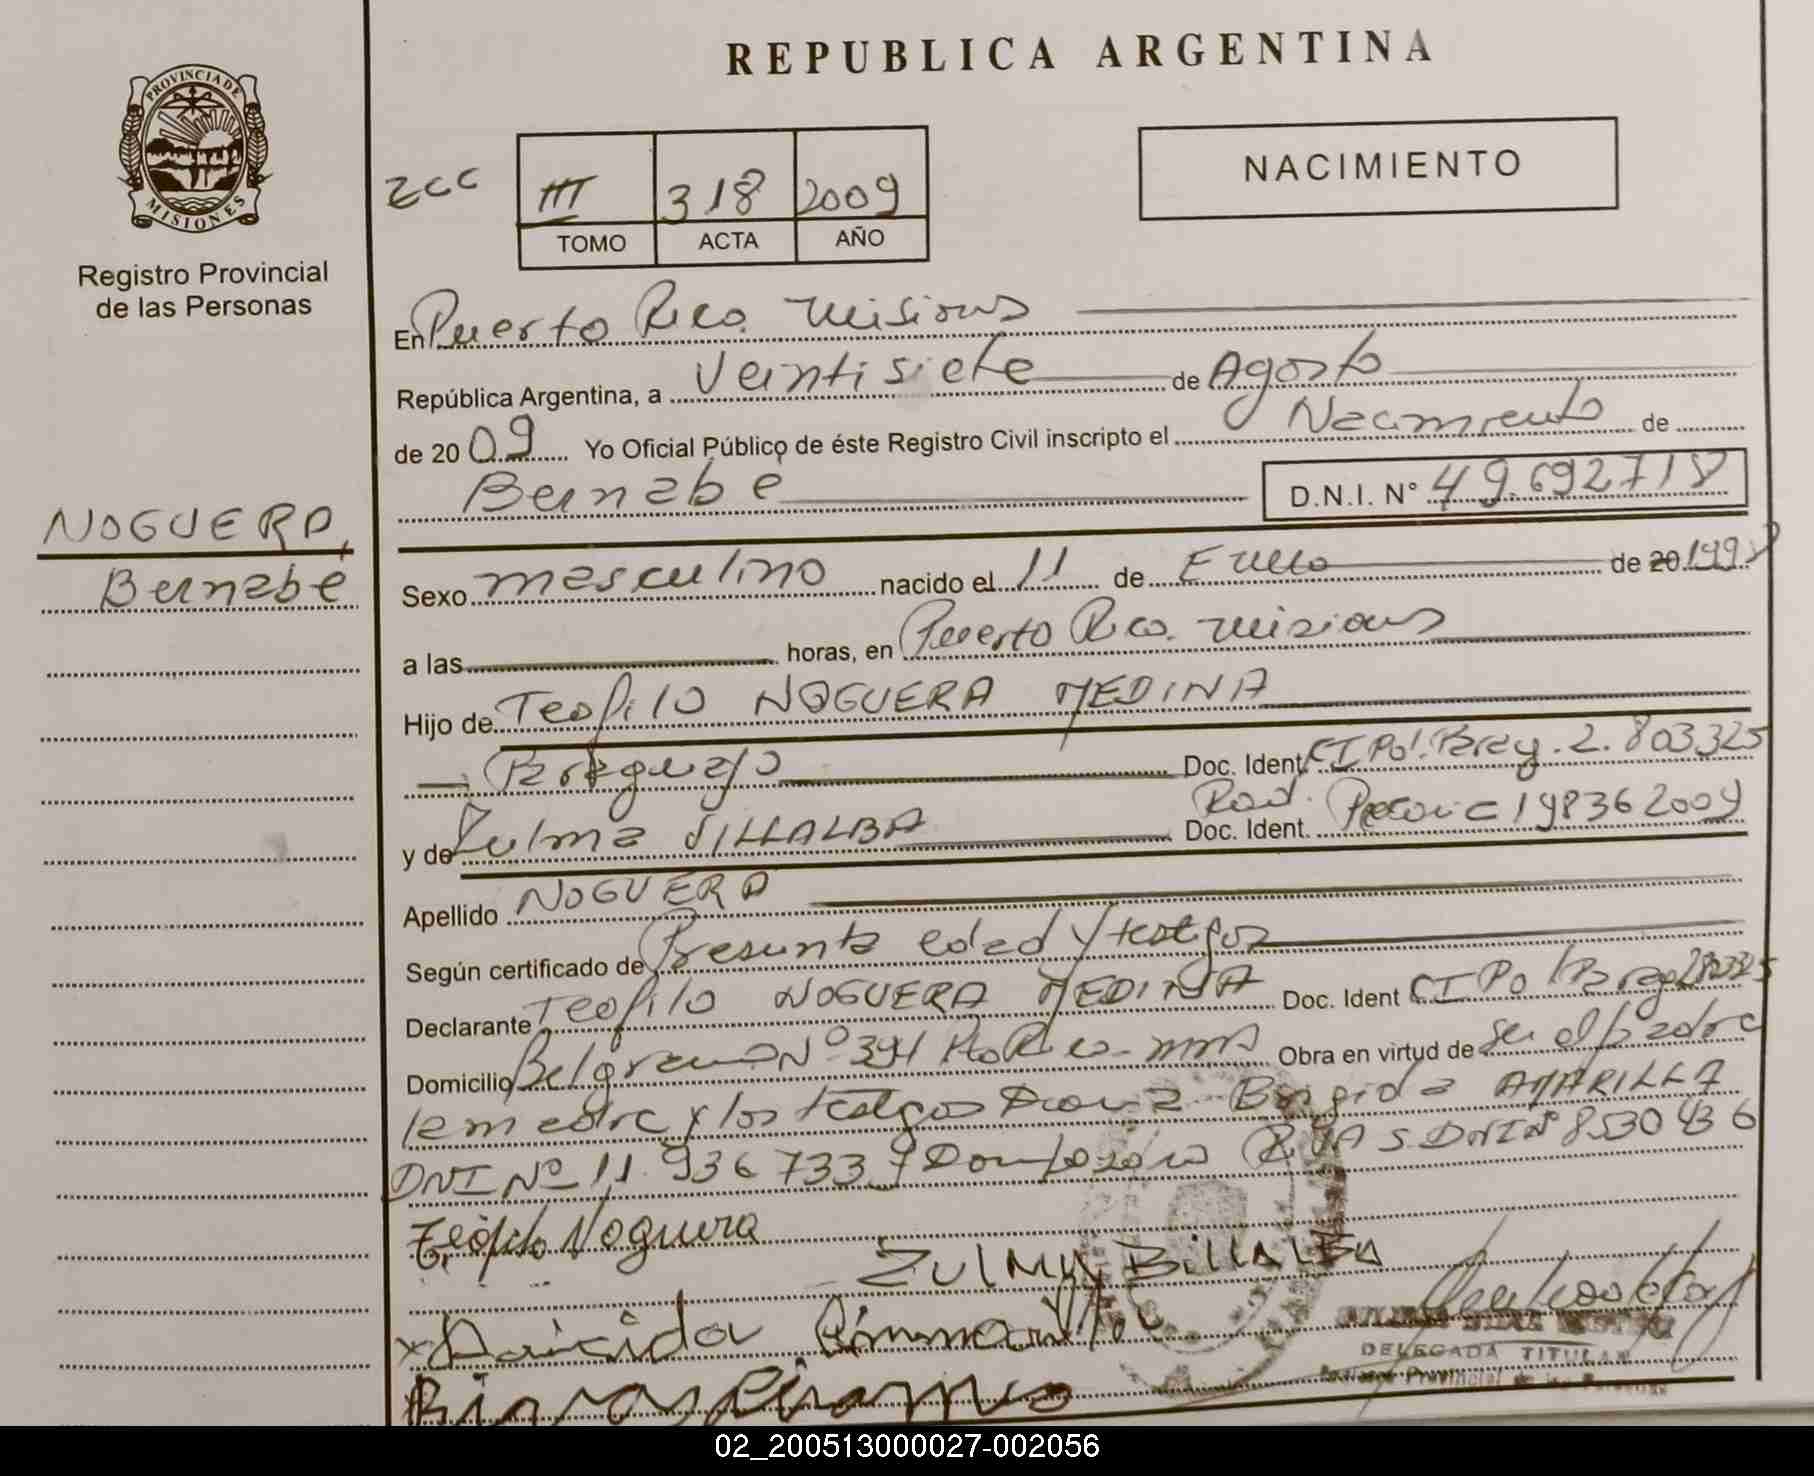 PROVINCIA DE
MISIONES
Registro Provincial
de las Personas
NOGUERA,
Bernabé
REPUBLICA ARGENTINA
III 318 2009
TOMO ACTA AÑO
NACIMIENTO
En Puerto Rico. Misiones
República Argentina, a Veintisiete de Agosto
de 2009 Yo Oficial Público de éste Registro Civil inscripto el Nacimiento de
Bernabé D.N.I. N° 49.692718
Sexo masculino nacido el 11 de Enero de 20 1998
a las horas, en Puerto Rico. Misiones
Hijo de Teofilo NOGUERA MEDINA
Paraguayo Doc. Ident. CI Pol. Parag. 2.803325
y de Zulma VILLALBA Doc. Ident. Rad. Precaria 198362009
Apellido NOGUERA
Según certificado de Presunta edad y testigos
Declarante Teofilo NOGUERA MEDINA Doc. Ident CI Pol Parag
Domicilio Belgrano Nº 391 Pto Rico - mnes Obra en virtud de ser el padre
la madre y los testigos Brigida AMARILLA
DNI Nº 11.936733 y RIVAS DNI Nº 8530436
Teofilo Noguera
ZULMA BillALBA
DELEGADA TITULAR
Registro Provincial de las Personas
02_200513000027-002056